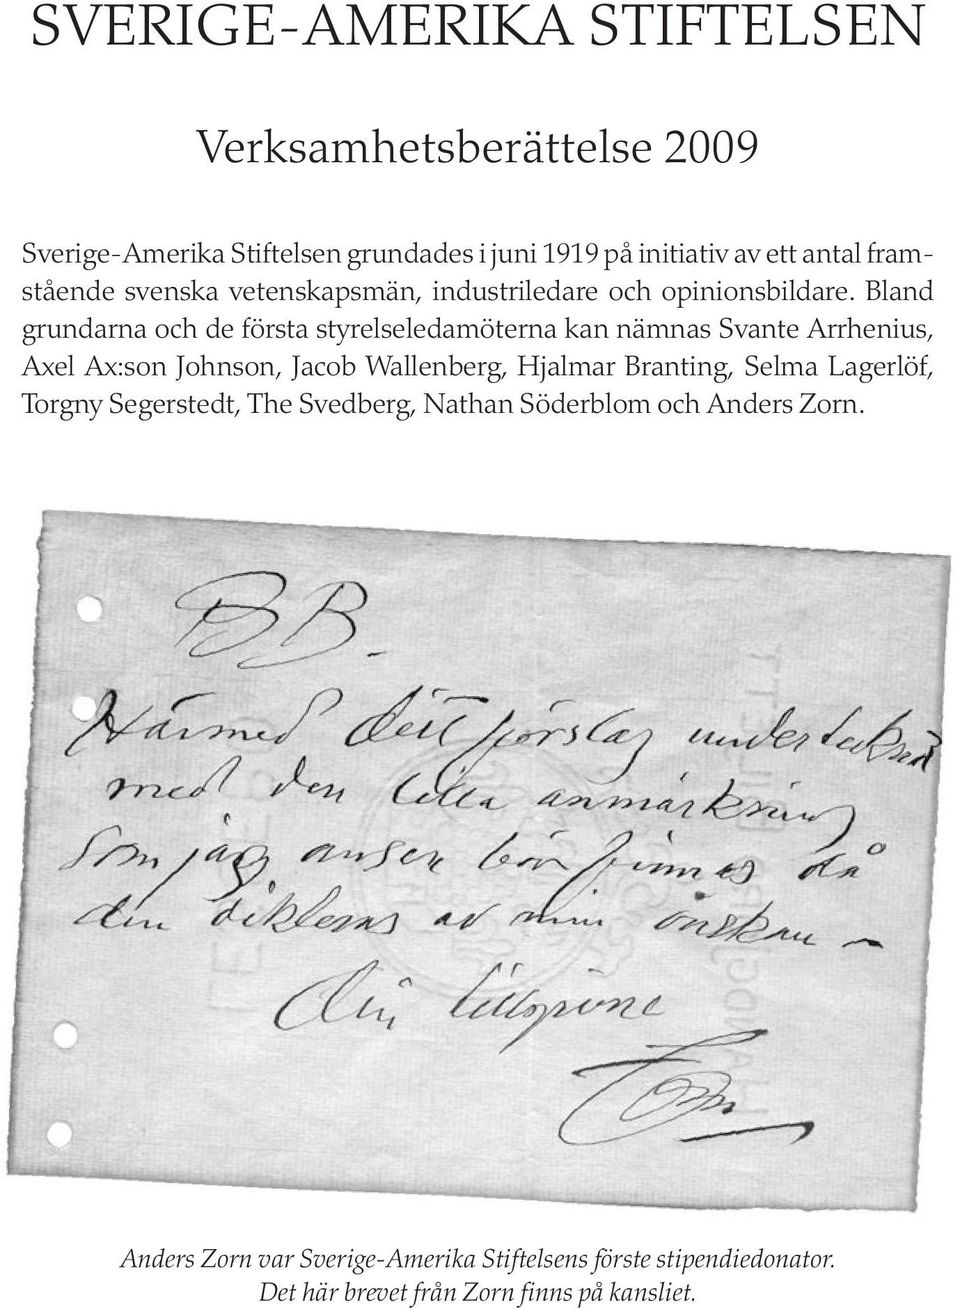 SVERIGE-AMERIKA STIFTELSEN
Verksamhetsberättelse 2009
Sverige-Amerika Stiftelsen grundades i juni 1919 på initiativ av ett antal fram-
stående svenska vetenskapsmän, industriledare och opinionsbildare. Bland
grundarna och de första styrelseledamöterna kan nämnas Svante Arrhenius,
Axel Ax:son Johnson, Jacob Wallenberg, Hjalmar Branting, Selma Lagerlöf,
Torgny Segerstedt, The Svedberg, Nathan Söderblom och Anders Zorn.
BB.
Härmed ditt förslag undertecknad
med den lilla anmärkning
som jag anser bör finnas då
den av min önskan –
Din tillgivne
Zorn
Anders Zorn var Sverige-Amerika Stiftelsens förste stipendiedonator.
Det här brevet från Zorn finns på kansliet.